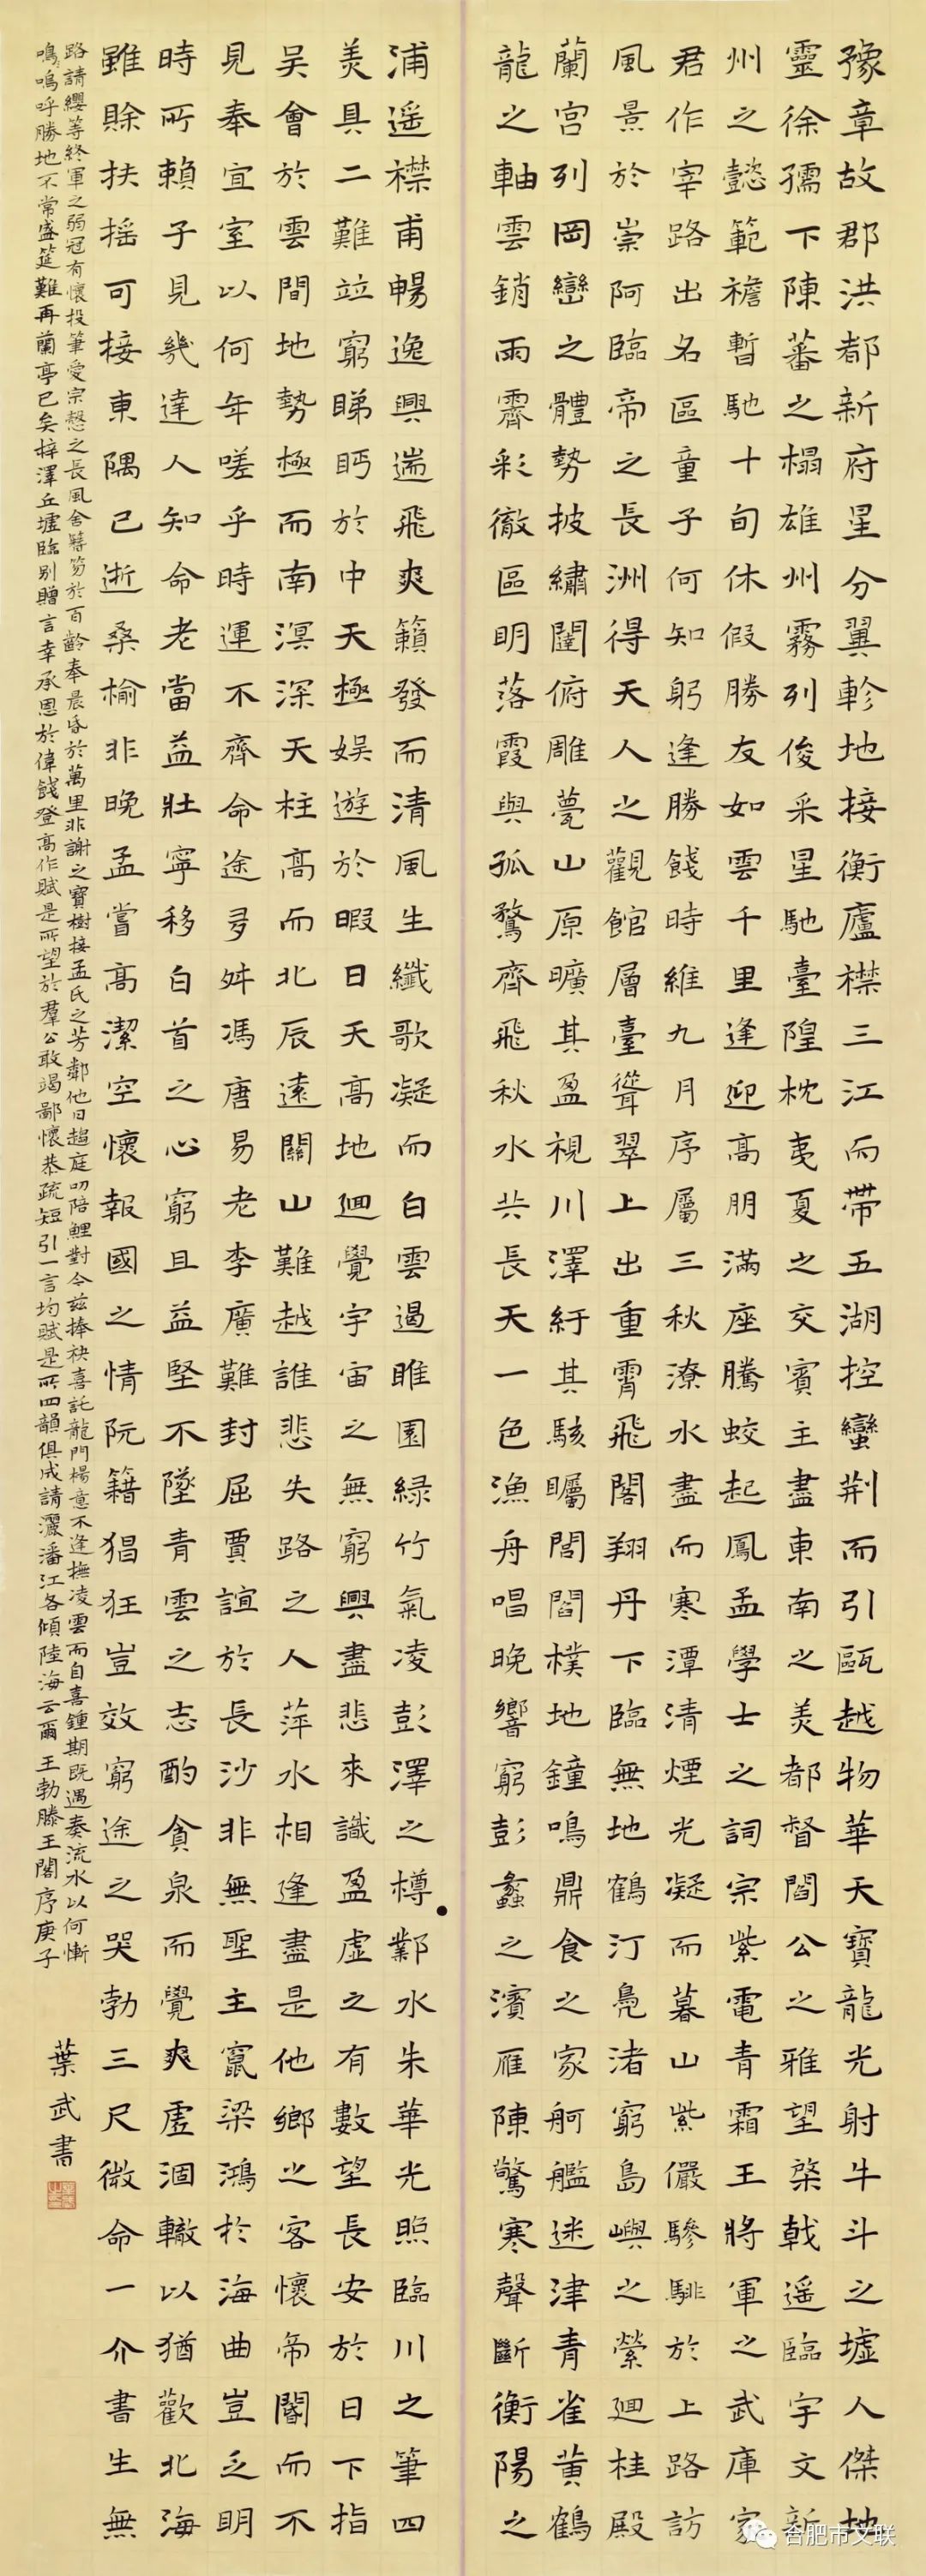 豫章故郡洪都新府星分翼軫地接衡廬襟三江而帶五湖控蠻荊而引甌越物華天寶龍光射牛斗之墟人傑地
靈徐孺下陳蕃之榻雄州霧列俊采星馳臺隍枕夷夏之交賓主盡東南之美都督閻公之雅望棨戟遥臨宇文新
州之懿範襜暫馳十旬休假勝友如雲千里逢迎高朋滿座騰蛟起鳳孟學士之詞宗紫電青霜王將軍之武庫家
君作宰路出名區童子何知躬逢勝餞時維九月序屬三秋潦水盡而寒潭清煙光凝而暮山紫儼驂騑於上路訪
風景於崇阿臨帝之長洲得天人之觀館層臺聳翠上出重霄飛閣翔丹下臨無地鶴汀鳧渚窮島嶼之縈迴桂殿
蘭宮列岡巒之體勢披繡闥俯雕甍山原曠其盈視川澤紆其駭矚閭閻樸地鐘鳴鼎食之家舸艦迷津青雀黄鶴
龍之軸雲銷雨霽彩徹區明落霞與孤鶩齊飛秋水共長天一色漁舟唱晚響窮彭蠡之濱雁陳驚寒聲斷衡陽之
浦遥襟甫暢逸興遄飛爽籟發而清風生纖歌凝而白雲遏睢園綠竹氣凌彭澤之樽鄴水朱華光照臨川之筆四
美具二難竝窮睇眄於中天極娛遊於暇日天高地迴覺宇宙之無窮興盡悲來識盈虛之有數望長安於日下指
吳會於雲間地勢極而南溟深天柱高而北辰遠關山難越誰悲失路之人萍水相逢盡是他鄉之客懷帝閽而不
見奉宣室以何年嗟乎時運不齊命途多舛馮唐易老李廣難封屈賈誼於長沙非無聖主竄梁鴻於海曲豈乏明
時所賴子見幾達人知命老當益壯寧移白首之心窮且益堅不墜青雲之志酌貪泉而覺爽處涸轍以猶歡北海
雖賒扶搖可接東隅已逝桑榆非晚孟嘗高潔空懷報國之情阮籍猖狂豈效窮途之哭勃三尺微命一介書生無
路請纓等終軍之弱冠有懷投筆愛宗慤之長風舍簪笏於百齡奉晨昏於萬里非謝之寶樹接孟氏之芳鄰他日趨庭叨陪鯉對今兹捧袂喜託龍門楊意不逢撫凌雲而自喜鍾期既遇奏流水以何慚
嗚嗚呼勝地不常盛筵難再蘭亭已矣梓澤丘墟臨別贈言幸承恩於偉餞登高作賦是所望於羣公敢竭鄙懷恭疏短引一言均賦是所四韻俱成請灑潘江各傾陸海云爾王勃滕王閣序庚子
葉武書
合肥市文联